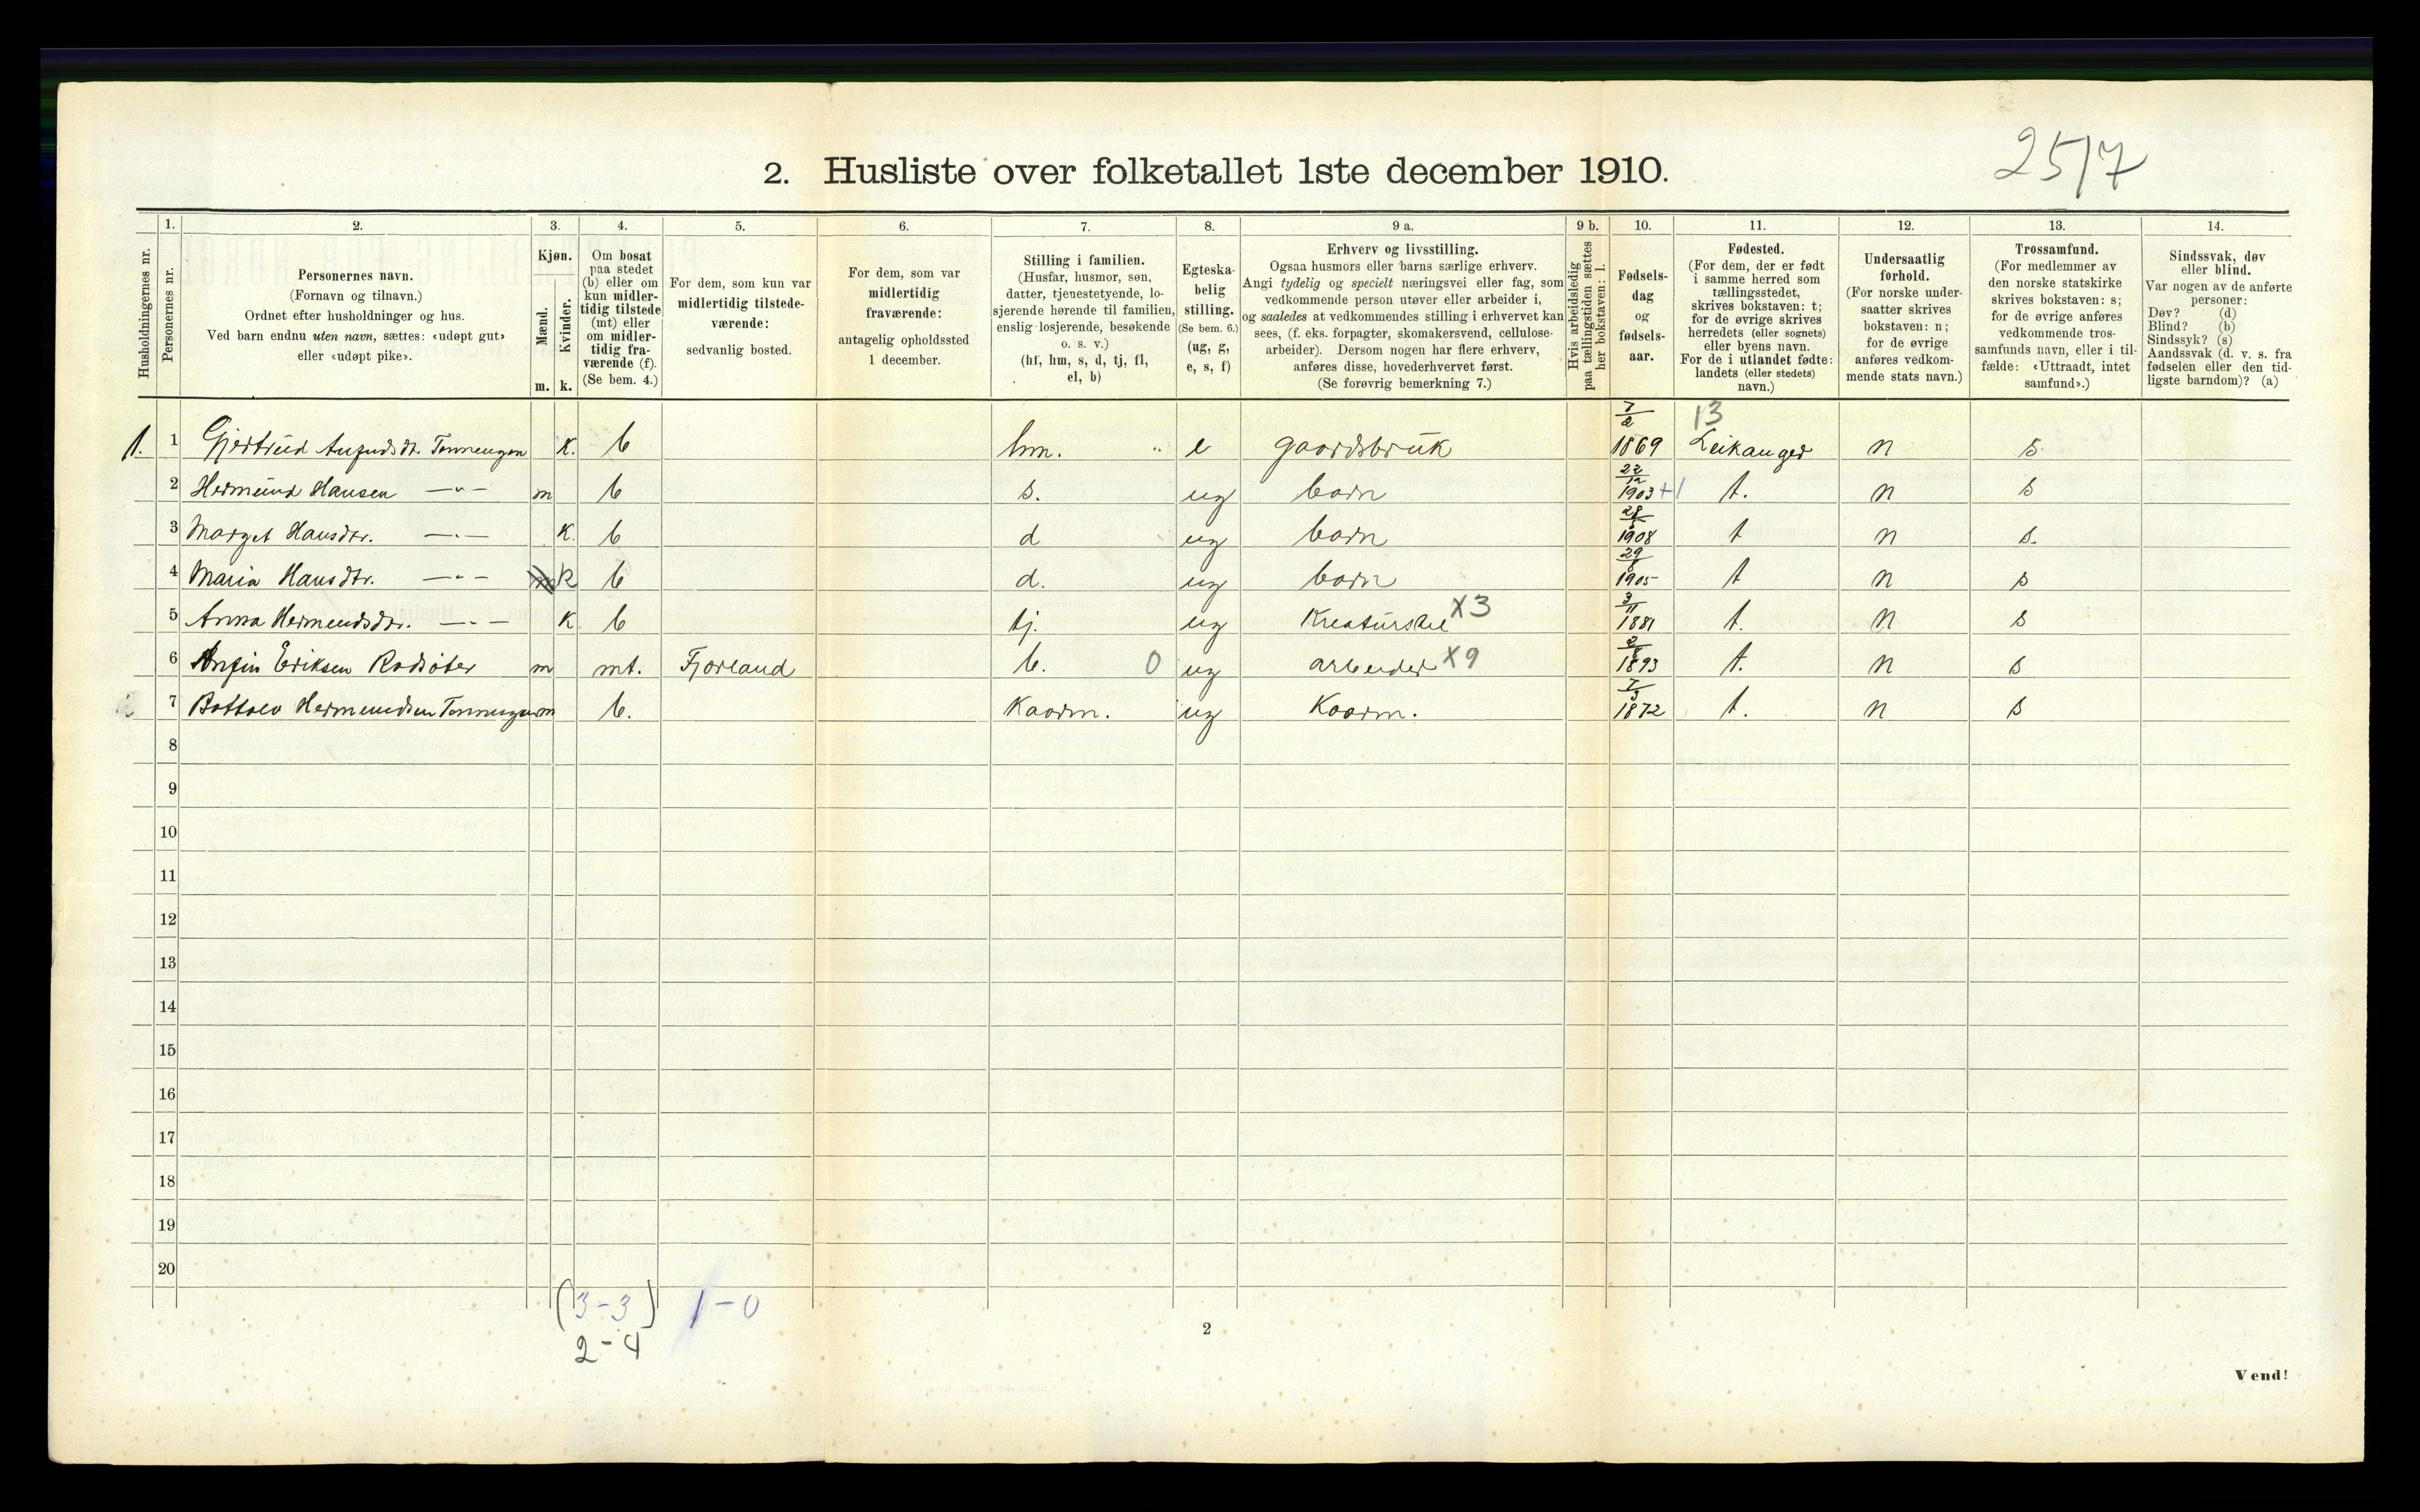 25/7
2. Husliste over folketallet 1ste december 1910.
Husholdningernes nr.
1.
Personernes nr.
2.
Personernes navn.
(Fornavn og tilnavn.)
Ordnet efter husholdninger og hus.
Ved barn endnu uten navn, sættes: «udøpt gut»
eller «udøpt pike».
3.
Kjøn.
Mænd.
Kvinder.
m. k.
4.
Om bosat
paa stedet
(b) eller om
kun midler-
tidig tilstede
(mt) eller
om midler-
tidig fra-
værende (f).
(Se bem. 4.)
5.
For dem, som kun var
midlertidig tilstede-
værende:
sedvanlig bosted.
6.
For dem, som var
midlertidig
fraværende:
antagelig opholdssted
1 december.
7.
Stilling i familien.
(Husfar, husmor, søn,
datter, tjenestetyende, lo-
sjerende hørende til familien,
enslig losjerende, besøkende
o. s. v.)
(hf, hm, s, d, tj, fl,
el, b)
8.
Egteska-
belig
stilling.
(Se bem. 6.)
(ug, g,
e, s, f)
9 a.
Erhverv og livsstilling.
Ogsaa husmors eller barns særlige erhverv.
Angi tydelig og specielt næringsvei eller fag, som
vedkommende person utøver eller arbeider i,
og saaledes at vedkommendes stilling i erhvervet kan
sees, (f. eks. forpagter, skomakersvend, cellulose-
arbeider). Dersom nogen har flere erhverv,
anføres disse, hovederhvervet først.
(Se forøvrig bemerkning 7.)
9 b.
Hvis arbeidsledig
paa tællingstiden sættes
her bokstaven: l.
10.
Fødsels-
dag
og
fødsels-
aar.
11.
Fødested.
(For dem, der er født
i samme herred som
tællingsstedet,
skrives bokstaven: t;
for de øvrige skrives
herredets (eller sognets)
eller byens navn.
For de i utlandet fødte:
landets (eller stedets)
navn.)
12.
Undersaatlig
forhold.
(For norske under-
saatter skrives
bokstaven: n;
for de øvrige
anføres vedkom-
mende stats navn.)
13.
Trossamfund.
(For medlemmer av
den norske statskirke
skrives bokstaven: s;
for de øvrige anføres
vedkommende tros-
samfunds navn, eller i til-
fælde: «Uttraadt, intet
samfund».)
14.
Sindssvak, døv
eller blind.
Var nogen av de anførte
personer:
Døv? (d)
Blind? (b)
Sindssyk? (s)
Aandssvak (d. v. s. fra
fødselen eller den tid-
ligste barndom)? (a)
13
1. 1 Gjertrud K. b hm. e gaardsbruk 7/2 1869 Leikanger n s
2 Hermund Hansen —"— m b s. ug barn 22/12 1903 +1 t. n s
3 Marget Hansdtr. —"— K. b d ug barn 1908 t n s.
4 Maria Hansdtr. —"— m k b d. ug barn 1905 t n s
5 Anna Hermundsdtr. —"— K b tj. ug Kreaturstel X3 3/11 1881 t. n s
6 Anfin Eriksen m mt. Fjærland b. 0 ug arbeider X9 1893 t. n s
7 Bottolv Hermundsen m b. Kaarm. ug Kaarm. 7/3 1872 t. n s
8
9
10
11
12
13
14
15
16
17
18
19
20
(3-3) 1-0
2-4
2
Vend!